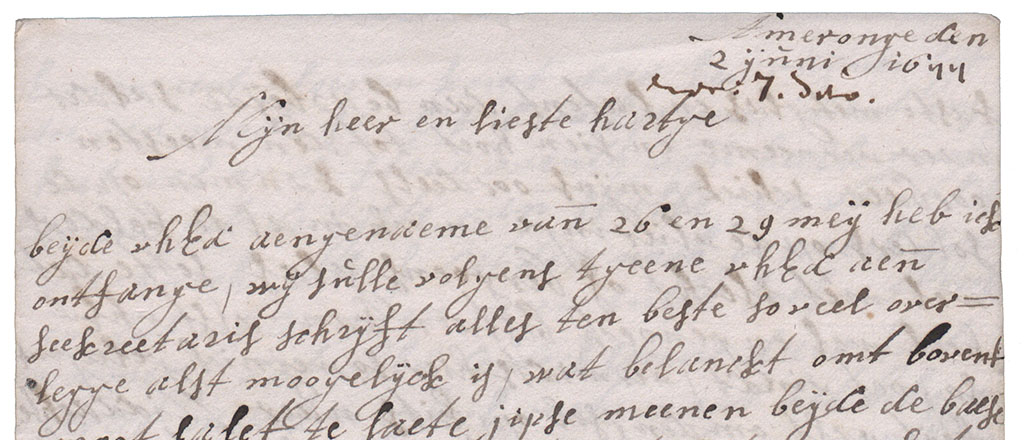 Ameronge den
2 yũni 1677
rec. 7. dito.
Mijn heer en lieste hartge
beijde uhEd aengenaeme van̄ 26 en 29 meij heb ick
ontfange, wij sulle volgens tgeene uhEd aen̄
seecreetaris schrijft alles ten beste so veel over=
legge alst moogelijck is, wat belanckt omt bovenst
salet te laete jipse meenen beijde de baese